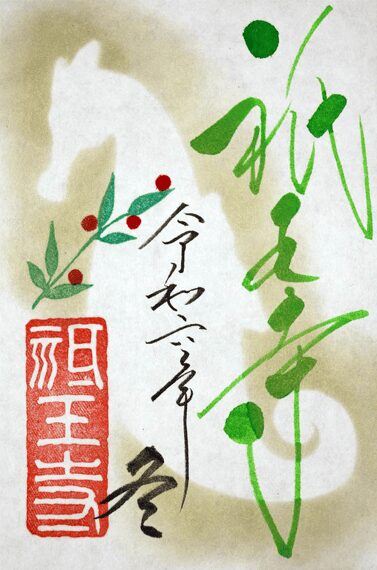 祇王寺
令和六年
冬
祇王寺